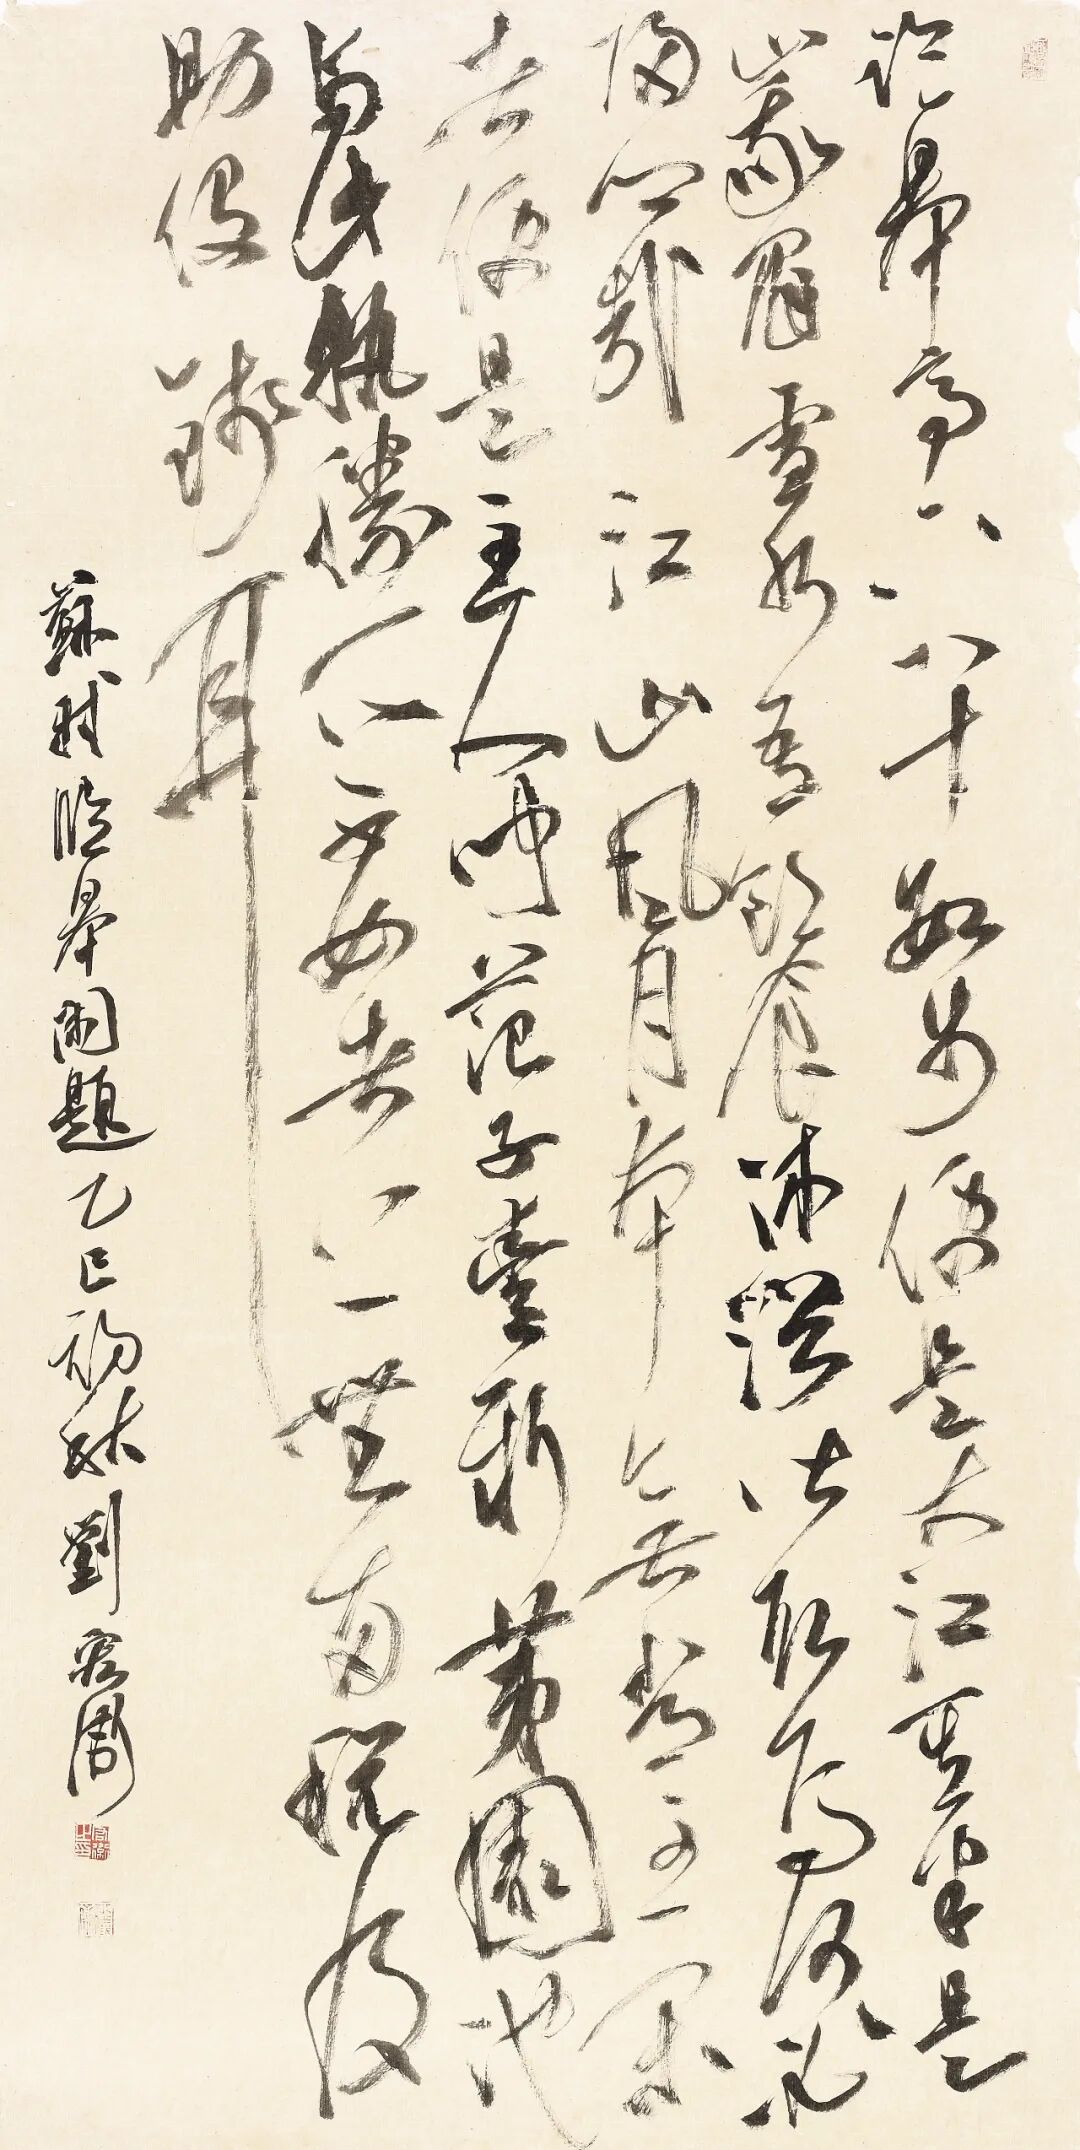 臨皋亭下八十數步便是大江其半是
峨眉雪水吾飲食沐浴皆取焉何必
歸鄉哉江山風月本無常主閑
者便是主人聞范子豐新第園池
與此孰勝所以不如者上無兩税及
助役錢耳
蘇軾臨皋閑題乙巳初秋劉